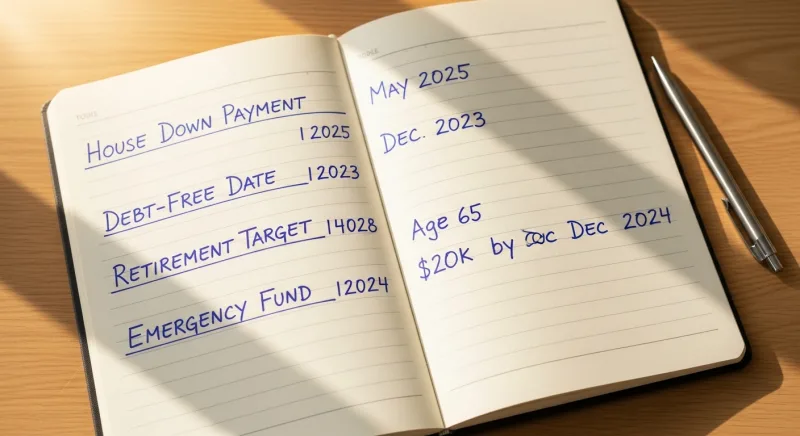 HOUSE DOWN PAYMENT
1 2025
DEBT-FREE DATE _12023
RETIREMENT TARGET _14028
EMERGENCY FUND _12024
MAY 2025
DEC. 2023
Age 65
$20K by DEC 2024